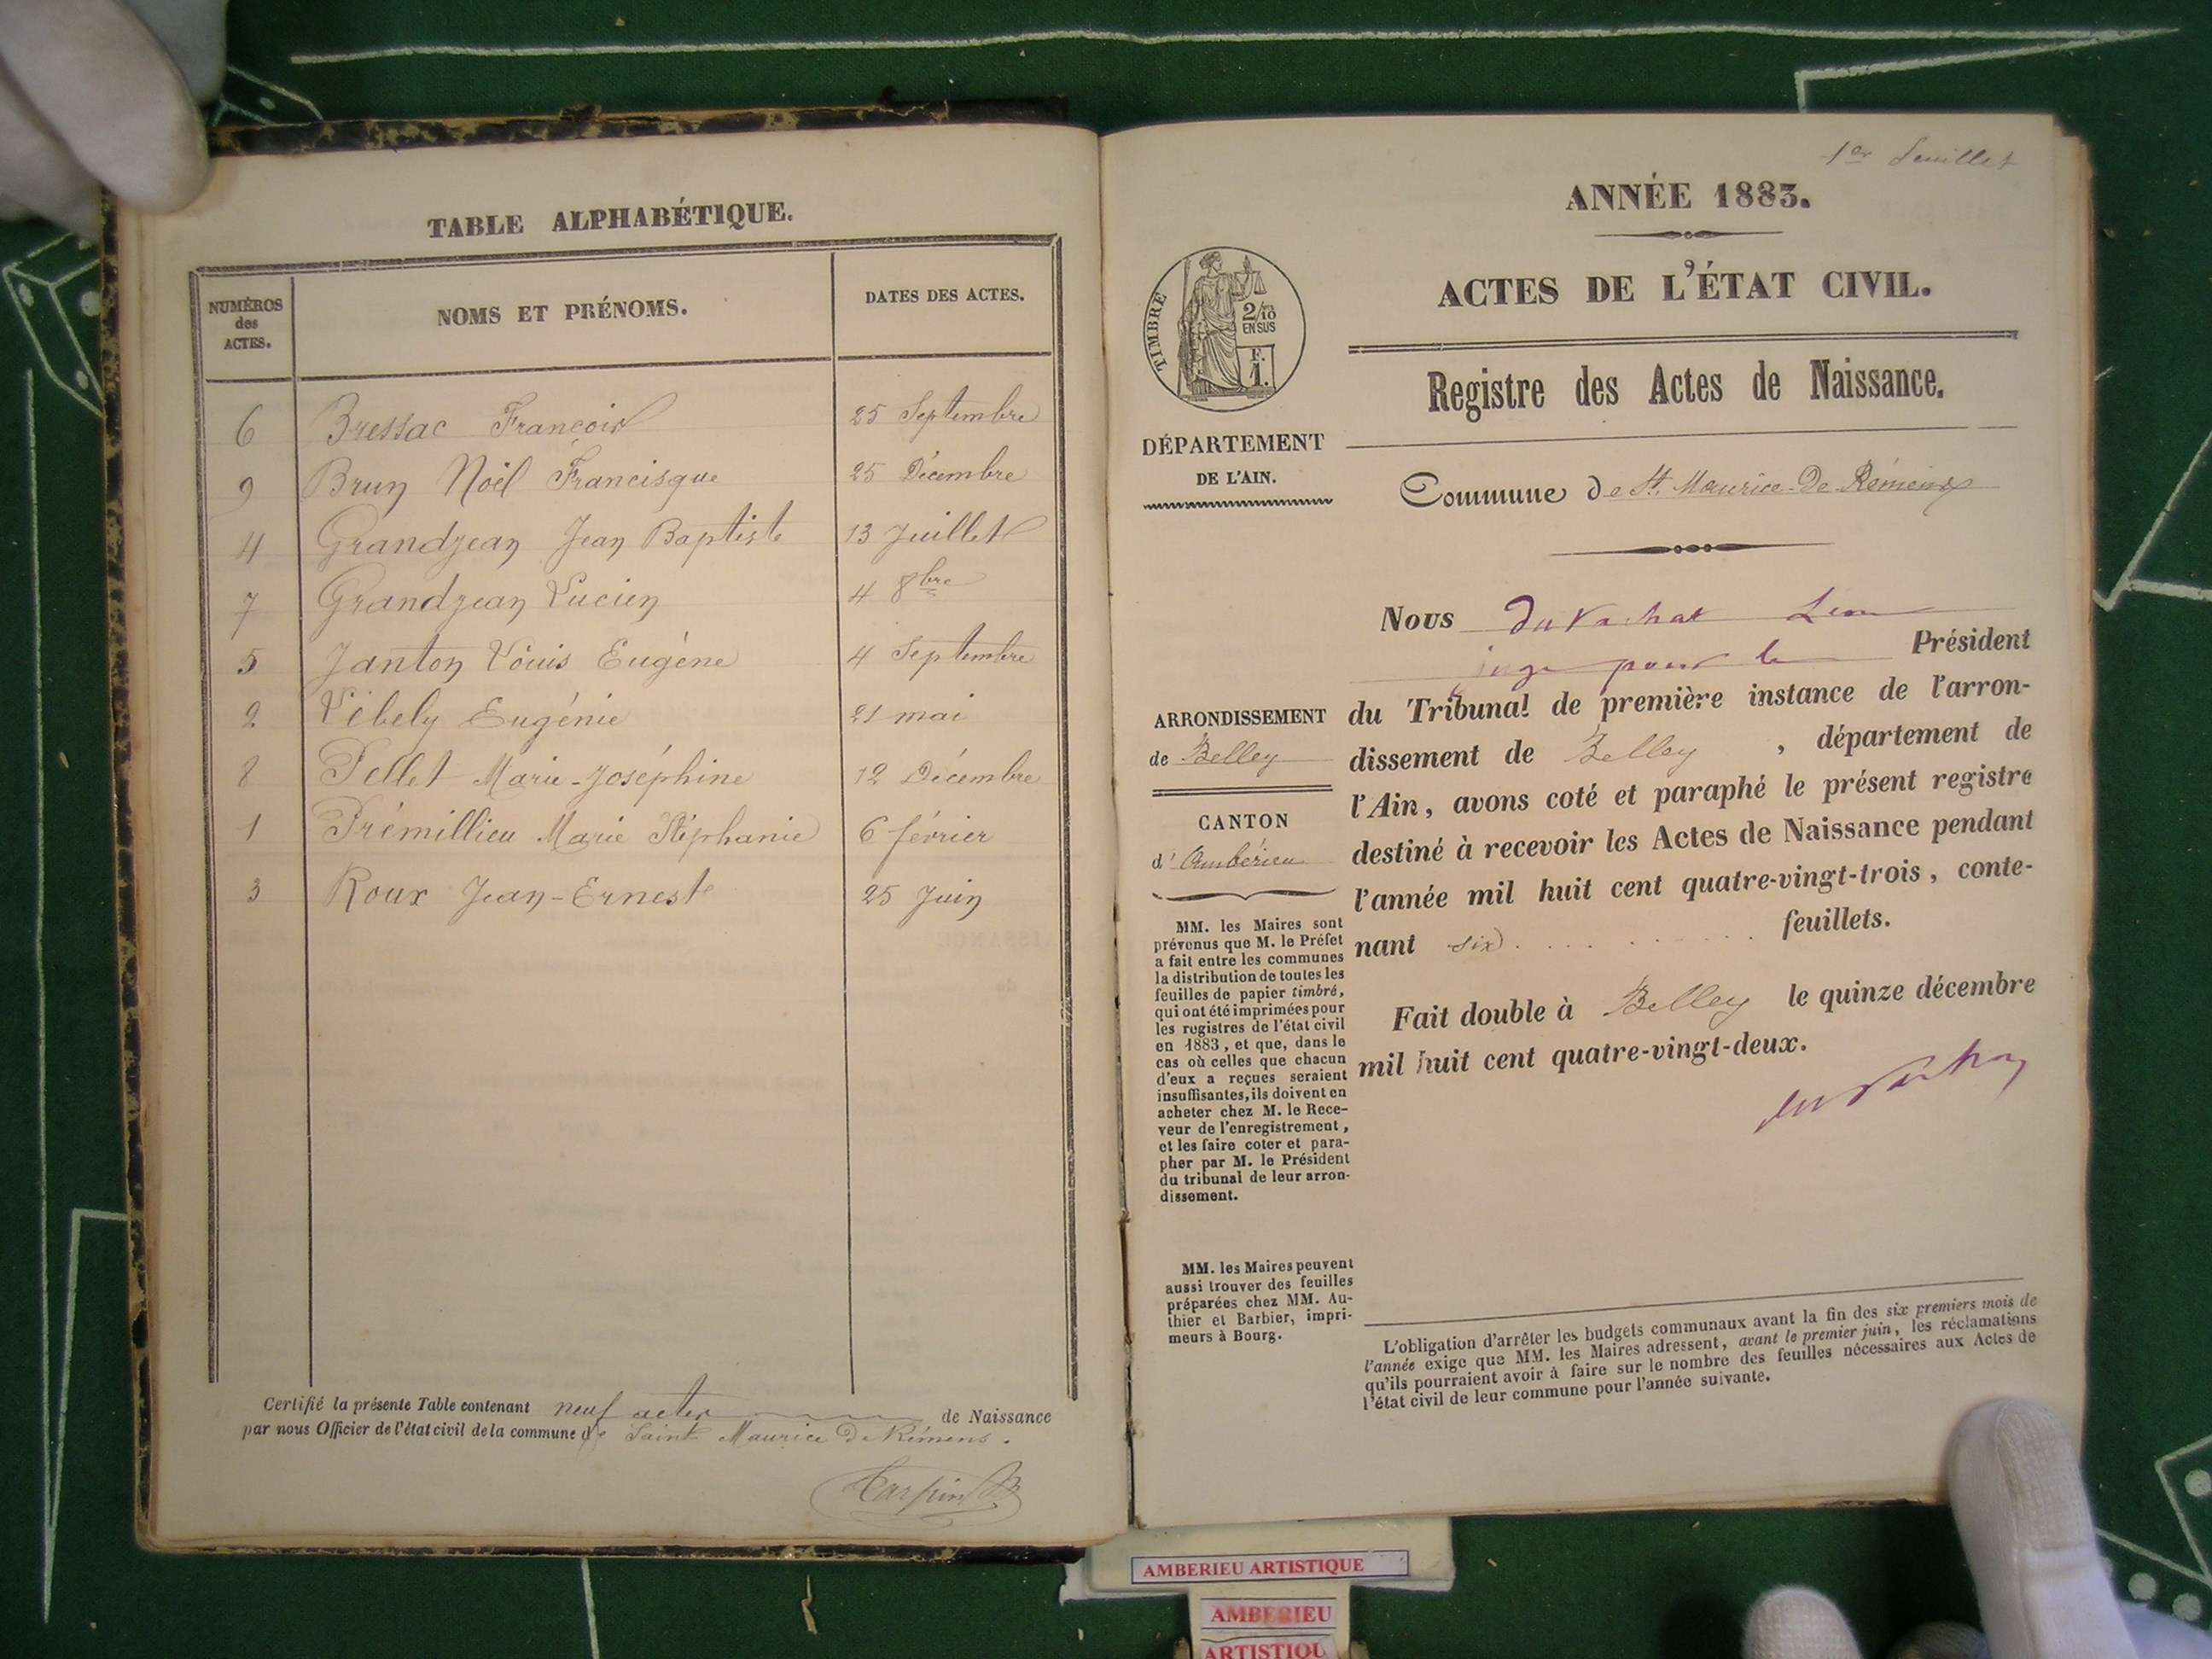 TABLE ALPHABÉTIQUE.
NUMÉROS des ACTES. NOMS ET PRÉNOMS. DATES DES ACTES.
6 Bressac François 25 Septembre
9 Brun Noël Francisque 25 Décembre
4 Grandjean Jean Baptiste 13 Juillet
7 Grandjean Lucien 4 8bre
5 Janton Louis Eugène 4 Septembre
2 Lébely Eugénie 21 mai
8 Pellet Marie-Joséphine 12 Décembre
1 Prémillieu Marie Stéphanie 6 février
3 Roux Jean-Ernest 25 Juin
Certifié la présente Table contenant neuf actes de Naissance
par nous Officier de l'état civil de la commune de Saint Maurice De Rémens.
Tarpin
1er feuillet
ANNÉE 1883.
ACTES DE L'ÉTAT CIVIL.
TIMBRE
2/10
EN SUS
F.
1.
Registre des Actes de Naissance.
DÉPARTEMENT
DE L'AIN.
Commune de St. Maurice-De-Rémens
Nous du Vachat Léon
juge pour le Président
du Tribunal de première instance de l'arron-
dissement de Belley, département de
l'Ain, avons coté et paraphé le présent registre
destiné à recevoir les Actes de Naissance pendant
l'année mil huit cent quatre-vingt-trois, conte-
nant six feuillets.
Fait double à Belley le quinze décembre
mil huit cent quatre-vingt-deux.
du Vachat
ARRONDISSEMENT
de Belley
CANTON
d'Ambérieu
MM. les Maires sont
prévenus que M. le Préfet
a fait entre les communes
la distribution de toutes les
feuilles de papier timbré,
qui ont été imprimées pour
les registres de l'état civil
en 1883, et que, dans le
cas où celles que chacun
d'eux a reçues seraient
insuffisantes, ils doivent en
acheter chez M. le Rece-
veur de l'enregistrement,
et les faire coter et para-
pher par M. le Président
du tribunal de leur arron-
dissement.
MM. les Maires peuvent
aussi trouver des feuilles
préparées chez MM. Au-
thier et Barbier, impri-
meurs à Bourg.
L'obligation d'arrêter les budgets communaux avant la fin des six premiers mois de
l'année exige que MM. les Maires adressent, avant le premier juin, les réclamations
qu'ils pourraient avoir à faire sur le nombre des feuilles nécessaires aux Actes de
l'état civil de leur commune pour l'année suivante.
AMBERIEU ARTISTIQUE
AMBERIEU
ARTISTIQU